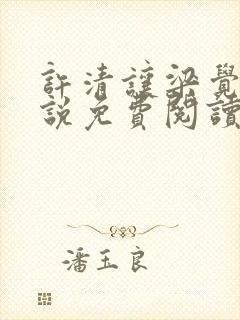 許清讓梁覺
說免費閱讀
潘玉良